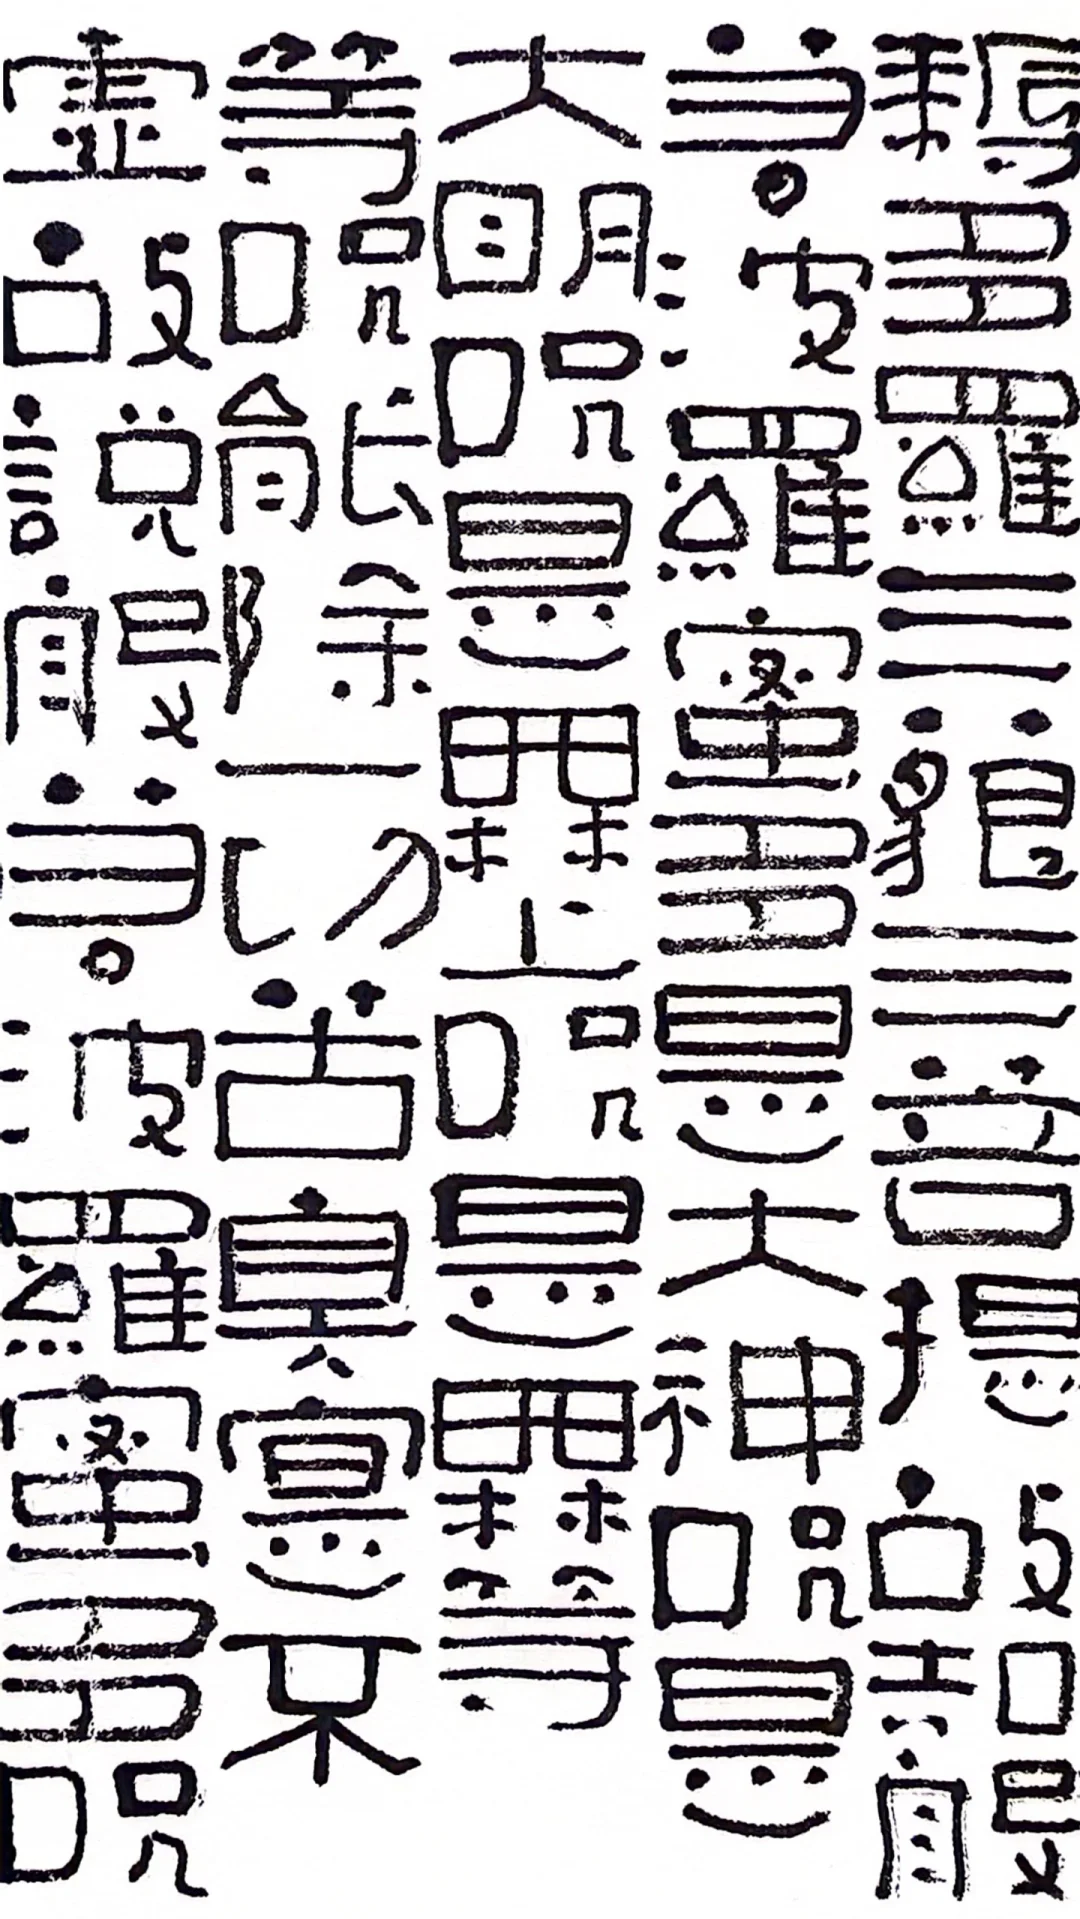 耨多羅三藐三菩提故知般
若波羅蜜多是大神呪是
大明呪是無上呪是無等
等呪能除一切苦真實不
虛故說般若波羅蜜多呪